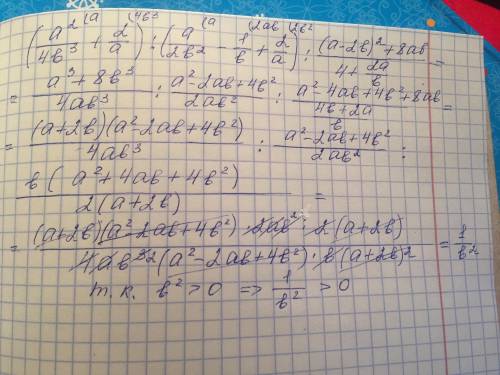 (a²/4b³ + 2/a) : (a/2b² - 1/b + 2/a) : ((a-2b)² + 8ab)/(4 + 2a/b) =
= (a³ + 8b³)/4ab³ : (a² - 2ab + 4b²)/2ab² : (a² - 4ab + 4b² + 8ab)/((4b + 2a)/b) =
= (a+2b)(a² - 2ab + 4b²)/4ab³ : (a² - 2ab + 4b²)/2ab² :
b(a² + 4ab + 4b²)/2(a+2b) =
= (a+2b)(a² - 2ab + 4b²) · 2ab² · 2(a+2b)/4ab³ 2(a² - 2ab + 4b²) · b(a+2b)² = 1/b²
т.к. b² > 0 => 1/b² > 0